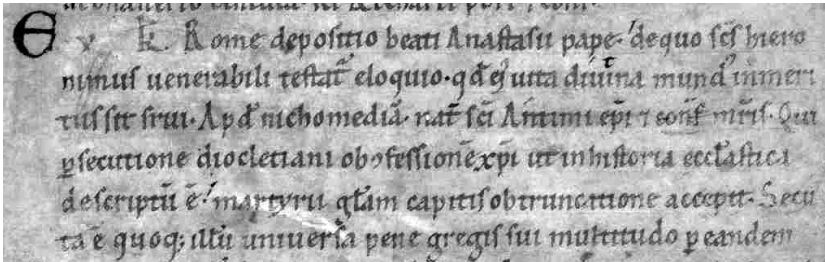 E v kł. Rome depositio beati Anastasii pape. de quo scs hiero
nimus uenerabili testat eloquio. qd ej uita diuina mund inmeri
tus sit frui. Apd nichomediā. nat sci Antimi epi ⁊ conf mris. Qui
psecutione diocletiani ob ꝯfessionē xpi ut in historia ecclastica
descriptū ē. martyrii glam capitis obtruncatione accepit. Secu
ta ē quoq; illū uniuersa pene gregis sui multitudo p eandem